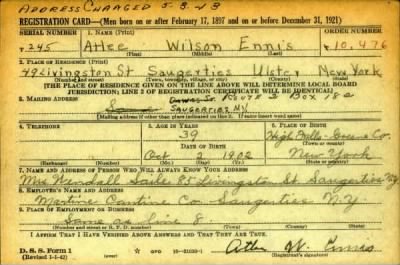 ADDRESS CHANGED 5-8-43
REGISTRATION CARD—(Men born on or after February 17, 1897 and on or before December 31, 1921)
SERIAL NUMBER 1. NAME (Print) ORDER NUMBER
T 245 Atlee Wilson Ennis 10,476
(First) (Middle) (Last)
2. PLACE OF RESIDENCE (Print)
49 Livingston St Saugerties Ulster New York
(Number and street) (Town, township, village, or city) (County) (State)
[THE PLACE OF RESIDENCE GIVEN ON THE LINE ABOVE WILL DETERMINE LOCAL BOARD
JURISDICTION; LINE 2 OF REGISTRATION CERTIFICATE WILL BE IDENTICAL]
3. MAILING ADDRESS
Same ROUTE 2 BOX 182
SAUGERTIES NY
[Mailing address if other than place indicated on line 2. If same insert word same]
4. TELEPHONE 5. AGE IN YEARS 6. PLACE OF BIRTH
39 High Falls - Greene Co.
DATE OF BIRTH (Town or county)
Oct 1902 New York
(Exchange) (Number) (Mo.) (Day) (Yr.) (State or country)
7. NAME AND ADDRESS OF PERSON WHO WILL ALWAYS KNOW YOUR ADDRESS
Mrs Wendall 85 Livingston St Saugerties N.Y.
8. EMPLOYER'S NAME AND ADDRESS
Martin Cantine Co Saugerties N.Y
9. PLACE OF EMPLOYMENT OR BUSINESS
Same as line 8.
(Number and street or R. F. D. number) (Town) (County) (State)
I AFFIRM THAT I HAVE VERIFIED ABOVE ANSWERS AND THAT THEY ARE TRUE.
D. S. S. Form 1
(Revised 1-1-42) (over) 16—21630-1 Atlee W. Ennis
(Registrant's signature)